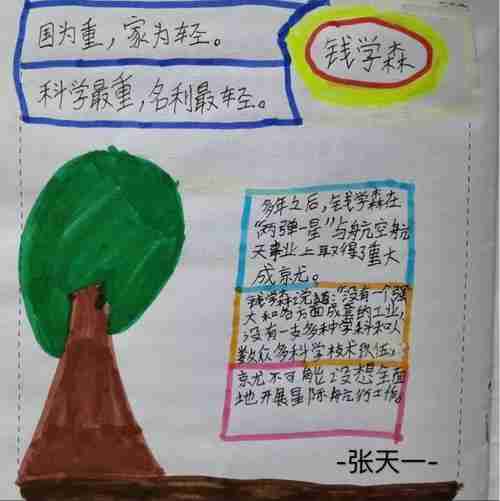 国为重，家为轻。
科学最重，名利最轻。
钱学森
多年之后，钱学森在
“两弹一星”与航空航
天事业上取得了重大
成就。
钱学森说过：“没有一个强
大和各方面成套的工业，
没有一支多种学科和人
数众多科学技术队伍，
就不可能设想全面
地开展星际航行工作。
-张天一-